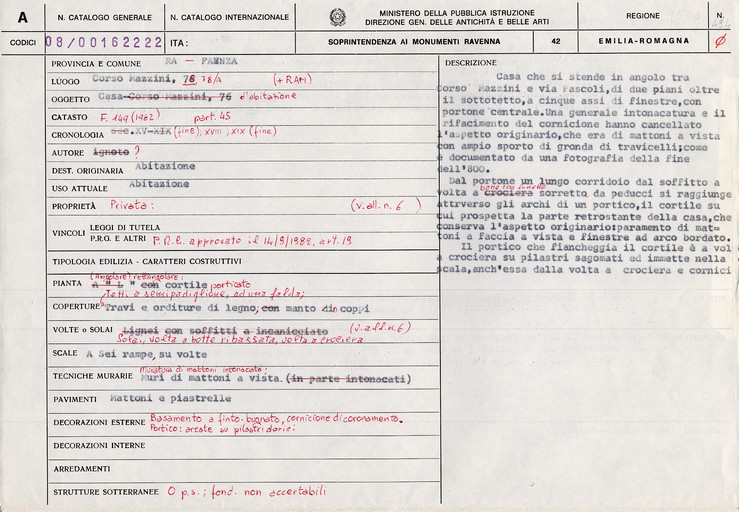 A
N. CATALOGO GENERALE
N. CATALOGO INTERNAZIONALE
MINISTERO DELLA PUBBLICA ISTRUZIONE
DIREZIONE GEN. DELLE ANTICHITÀ E BELLE ARTI
REGIONE
N.
CODICI
08/00162222
ITA:
SOPRINTENDENZA AI MONUMENTI RAVENNA
42
EMILIA-ROMAGNA
PROVINCIA E COMUNE RA — FAENZA
LUOGO Corso Mazzini, 76, 78/A (+RAM)
OGGETTO Casa Corso Mazzini, 76 d'abitazione
CATASTO F. 149 (1962) part. 45
CRONOLOGIA Sec. XV-XIX (fine); XVIII; XIX (fine)
AUTORE ignoto ?
DEST. ORIGINARIA Abitazione
USO ATTUALE Abitazione
PROPRIETÀ Privata: (v. all. n. 6)
VINCOLI
LEGGI DI TUTELA
P.R.G. E ALTRI P.R.G. approvato il 14/9/1982, art. 19
TIPOLOGIA EDILIZIA - CARATTERI COSTRUTTIVI
(Angolare) rettangolare:
PIANTA A " L " con cortile porticato
Tetti a semipadiglione, ad una falda;
COPERTURE Travi e orditure di legno, con manto in coppi
VOLTE o SOLAI Lignei con soffitti a incanicciato (v. all. n. 6)
Solai, volta a botte ribassata, volta a crociera
SCALE A sei rampe, su volte
Muratura di mattoni intonacata;
TECNICHE MURARIE Muri di mattoni a vista. (in parte intonacati)
PAVIMENTI Mattoni e piastrelle
DECORAZIONI ESTERNE Basamento a finto-bugnato, cornicione di coronamento.
Portico: arcate su pilastri dorici
DECORAZIONI INTERNE
ARREDAMENTI
STRUTTURE SOTTERRANEE 0 p.s.; fond. non accertabili
DESCRIZIONE
Casa che si stende in angolo tra
Corso Mazzini e via Pascoli, di due piani oltre
il sottotetto, a cinque assi di finestre, con
portone centrale. Una generale intonacatura e il
rifacimento del cornicione hanno cancellato
l'aspetto originario, che era di mattoni a vista
con ampio sporto di gronda di travicelli; come
è documentato da una fotografia della fine
dell'800.
Dal portone un lungo corridoio dal soffitto a
volta a crociera sorretto da peducci si raggiunge
attraverso gli archi di un portico, il cortile su
cui prospetta la parte retrostante della casa, che
conserva l'aspetto originario: paramento di mat=
toni a faccia a vista e finestre ad arco bordato.
Il portico che fiancheggia il cortile è a vol
a crociera su pilastri sagomati ad immette nella
scala, anch'essa dalla volta a crociera e cornici